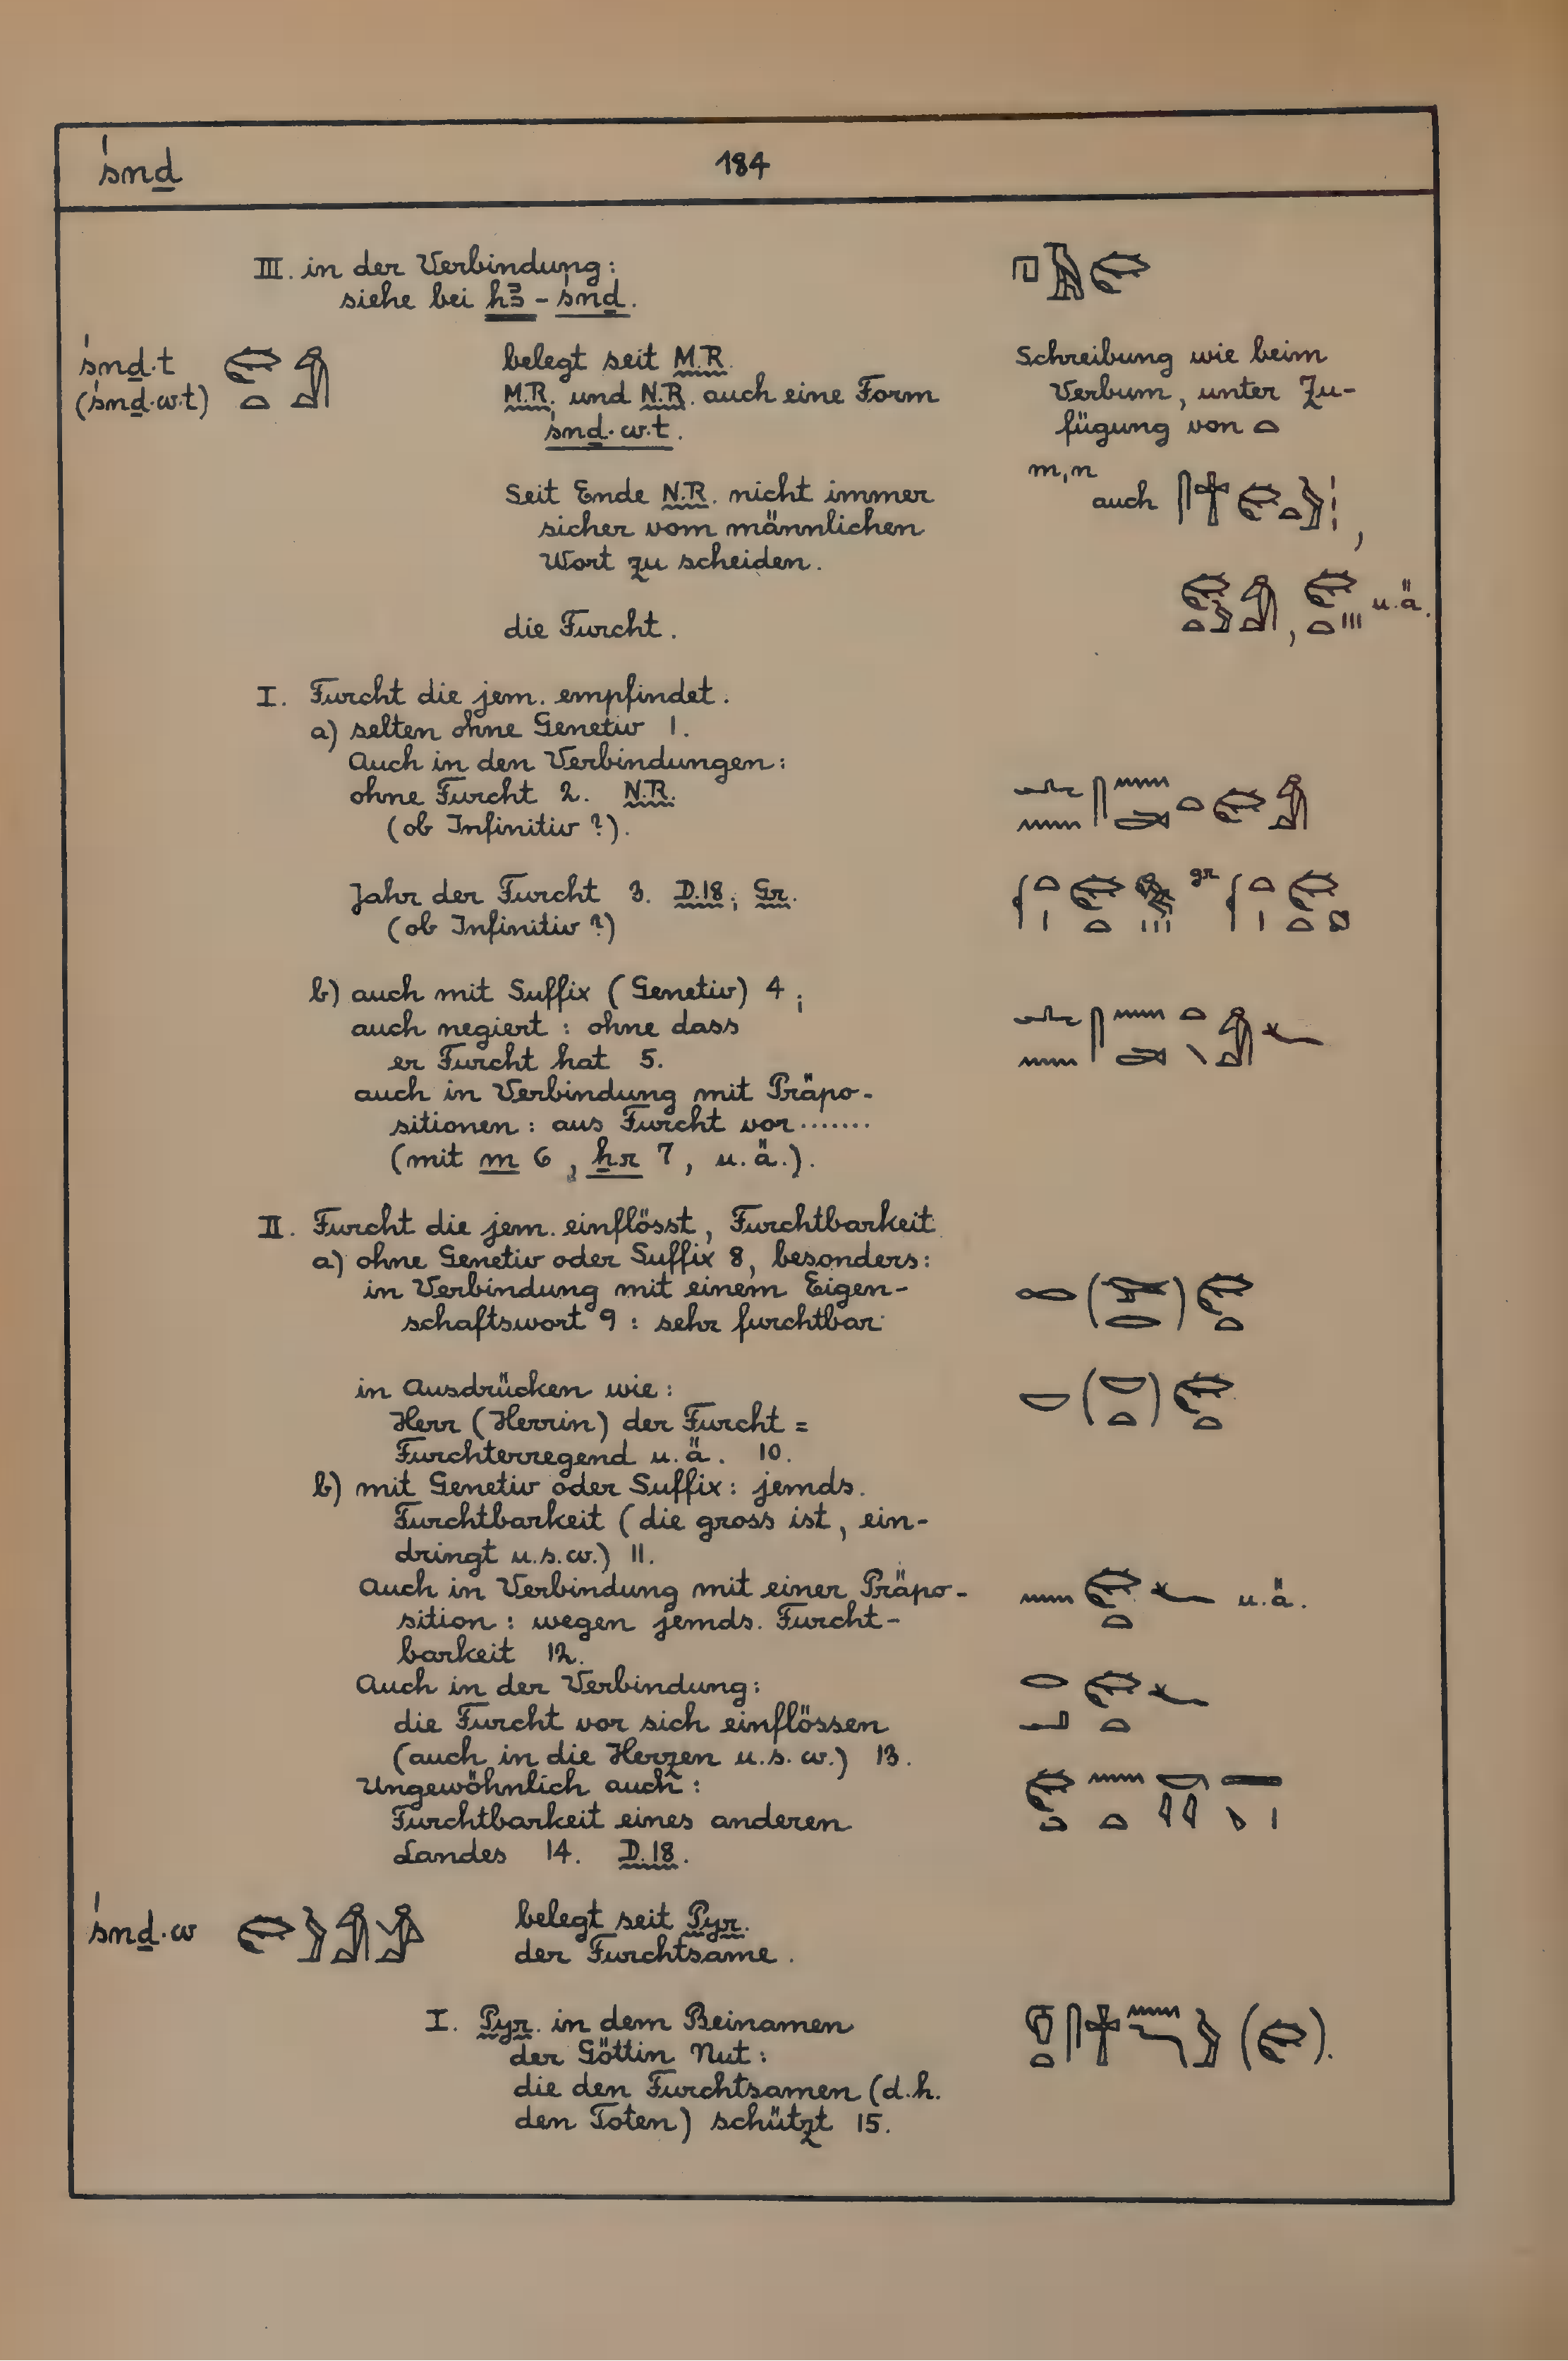 śnḏ 184
III. in der Verbindung:
siehe bei hꜣ - śnḏ.
śnḏ.t
(śnḏ.w.t)
belegt seit M.R.
M.R. und N.R. auch eine Form
śnḏ.w.t.
Schreibung wie beim
Verbum, unter Zu-
fügung von 𓏏
Seit Ende N.R. nicht immer
sicher vom männlichen
Wort zu scheiden.
m, n
auch
u.ä.
die Furcht.
I. Furcht die jem. empfindet.
a) selten ohne Genetiv 1.
Auch in den Verbindungen:
ohne Furcht 2. N.R.
(ob Infinitiv?).
Jahr der Furcht 3. D.18; Gr.
gr
(ob Infinitiv?)
b) auch mit Suffix (Genetiv) 4;
auch negiert: ohne dass
er Furcht hat 5.
auch in Verbindung mit Präpo-
sitionen: aus Furcht vor.......
(mit m 6, ḥr 7, u.ä.).
II. Furcht die jem. einflösst, Furchtbarkeit
a) ohne Genetiv oder Suffix 8, besonders:
in Verbindung mit einem Eigen-
schaftswort 9: sehr furchtbar
in Ausdrücken wie:
Herr (Herrin) der Furcht =
Furchterregend u.ä. 10.
b) mit Genetiv oder Suffix: jemds.
Furchtbarkeit (die gross ist, ein-
dringt u.s.w.) 11.
Auch in Verbindung mit einer Präpo-
sition: wegen jemds. Furcht-
barkeit 12.
u.ä.
Auch in der Verbindung:
die Furcht vor sich einflössen
(auch in die Herzen u.s.w.) 13.
Ungewöhnlich auch:
Furchtbarkeit eines anderen
Landes 14. D.18.
śnḏ.w
belegt seit Pyr.
der Furchtsame.
I. Pyr. in dem Beinamen
der Göttin Nut:
die den Furchtsamen (d.h.
den Toten) schützt 15.